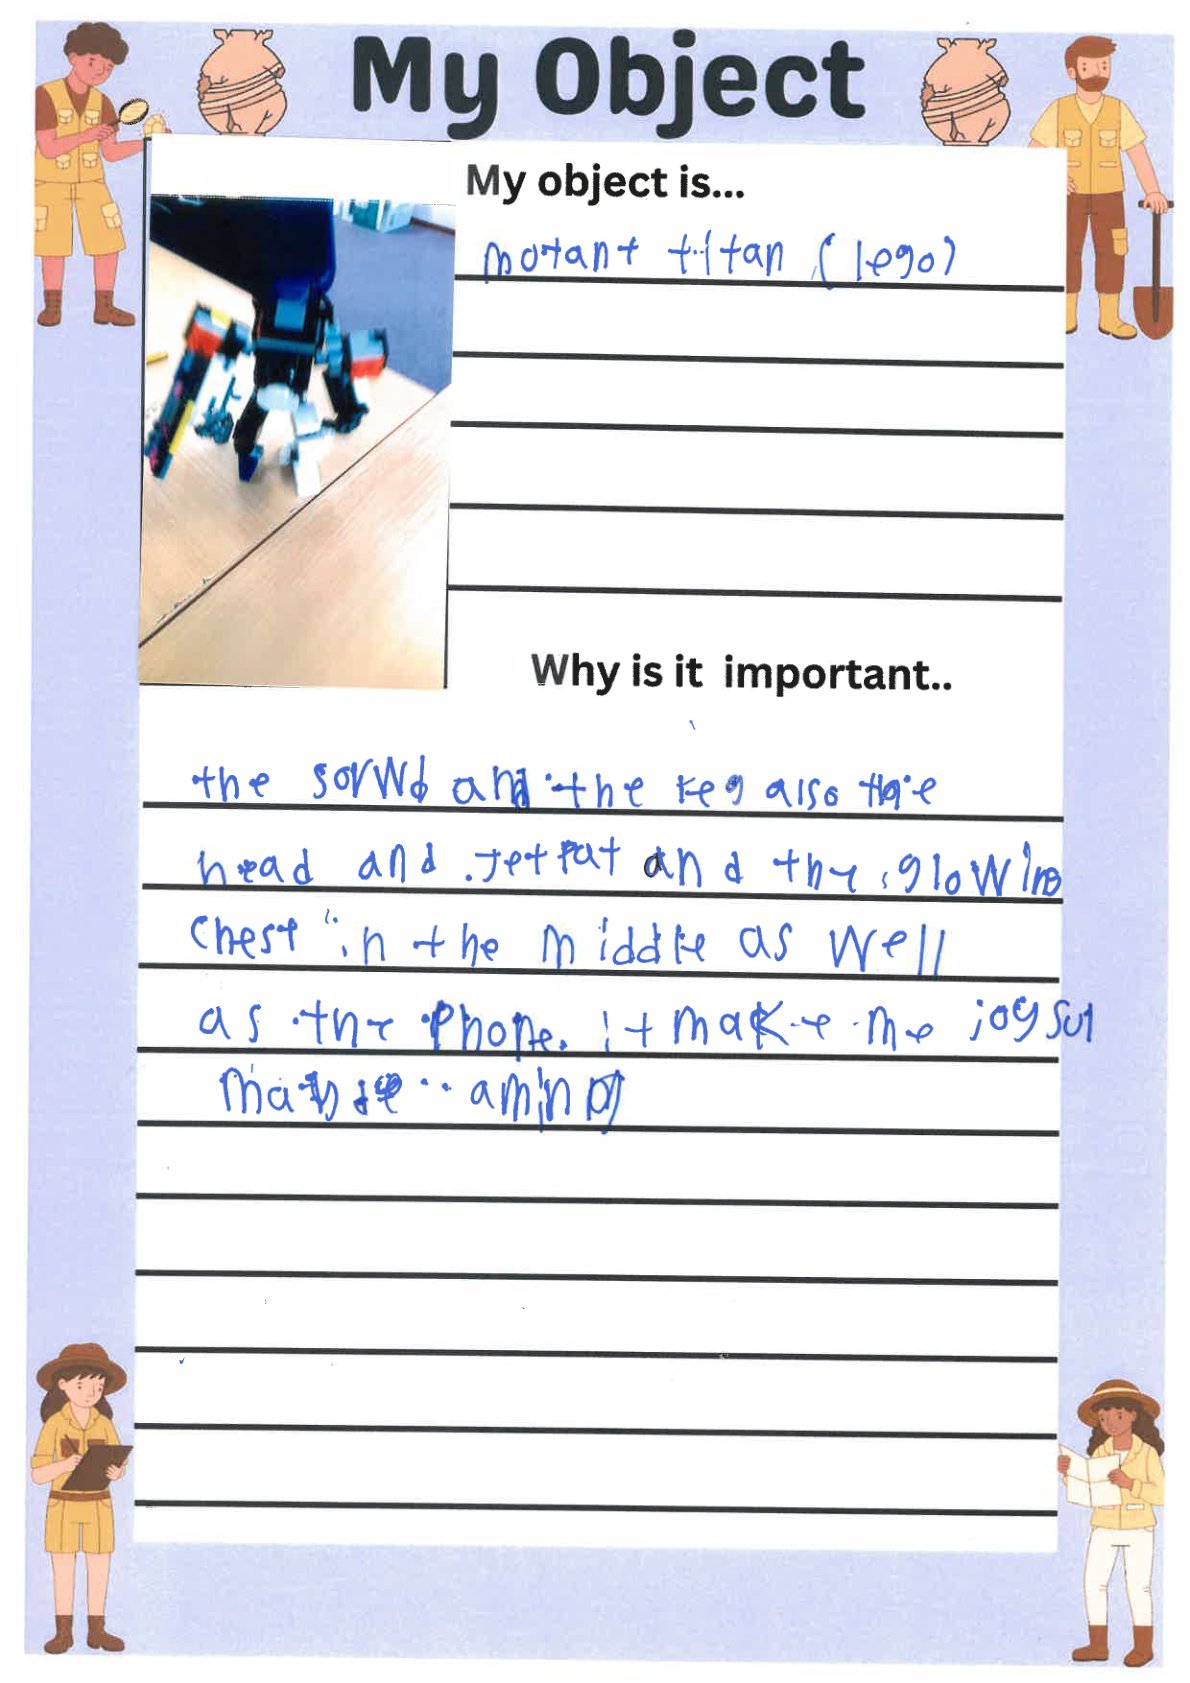 My Object
My object is...
motant titan (lego)
Why is it important..
the sorwd and the leg also the
head and Jetpat and the glowing
chest in the middle as well
as the Phone. it make me joyful